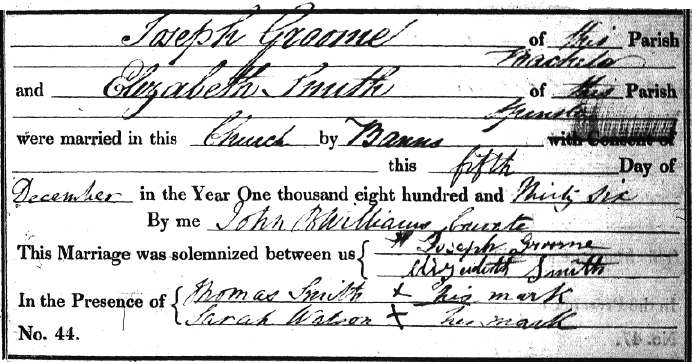 Joseph Groome of this Parish
Bachelor
and Elizabeth Smith of this Parish
Spinster
were married in this Church by Banns with Consent of
this fifth Day of
December in the Year One thousand eight hundred and Thirty six
By me John Williams Curate
This Marriage was solemnized between us { Joseph Groome
Elizabeth Smith
In the Presence of { Thomas Smith x his mark
Sarah Watson x her mark
No. 44.